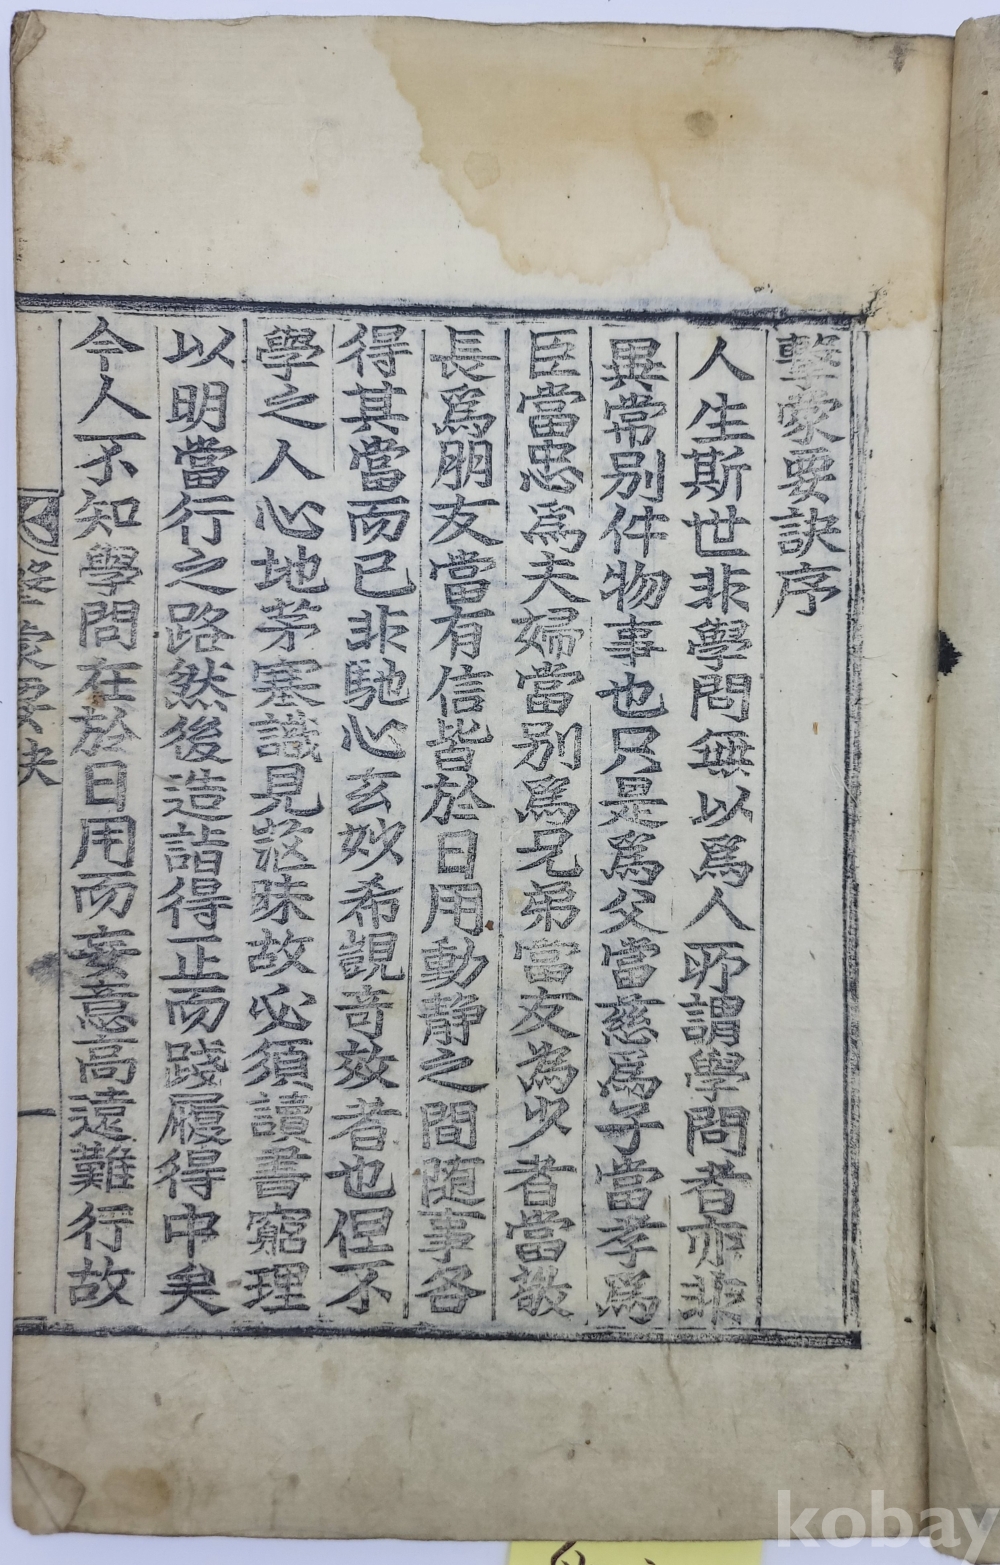 擊蒙要訣序
人生斯世非學問無以爲人所謂學問者亦非
異常別件物事也只是爲父當慈爲子當孝爲
臣當忠爲夫婦當別爲兄弟當友為少者當敬
長爲朋友當有信皆於日用動靜之間随事各
得其當而已非馳心玄妙希覬奇效者也但不
學之人心地茅塞識見茫昧故必須讀書窮理
以明當行之路然後造詣得正而踐履得中矣
今人不知學問在於日用而妄意高遠難行故
擊蒙要訣
一
kobay